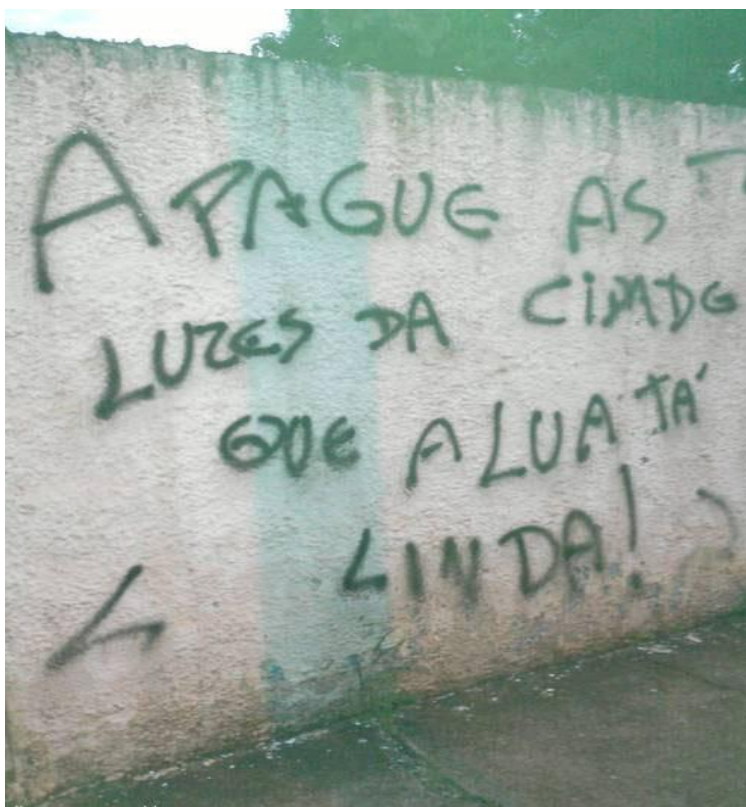 APAGUE AS
LUZES DA CIDADE
QUE A LUA TÁ
LINDA!